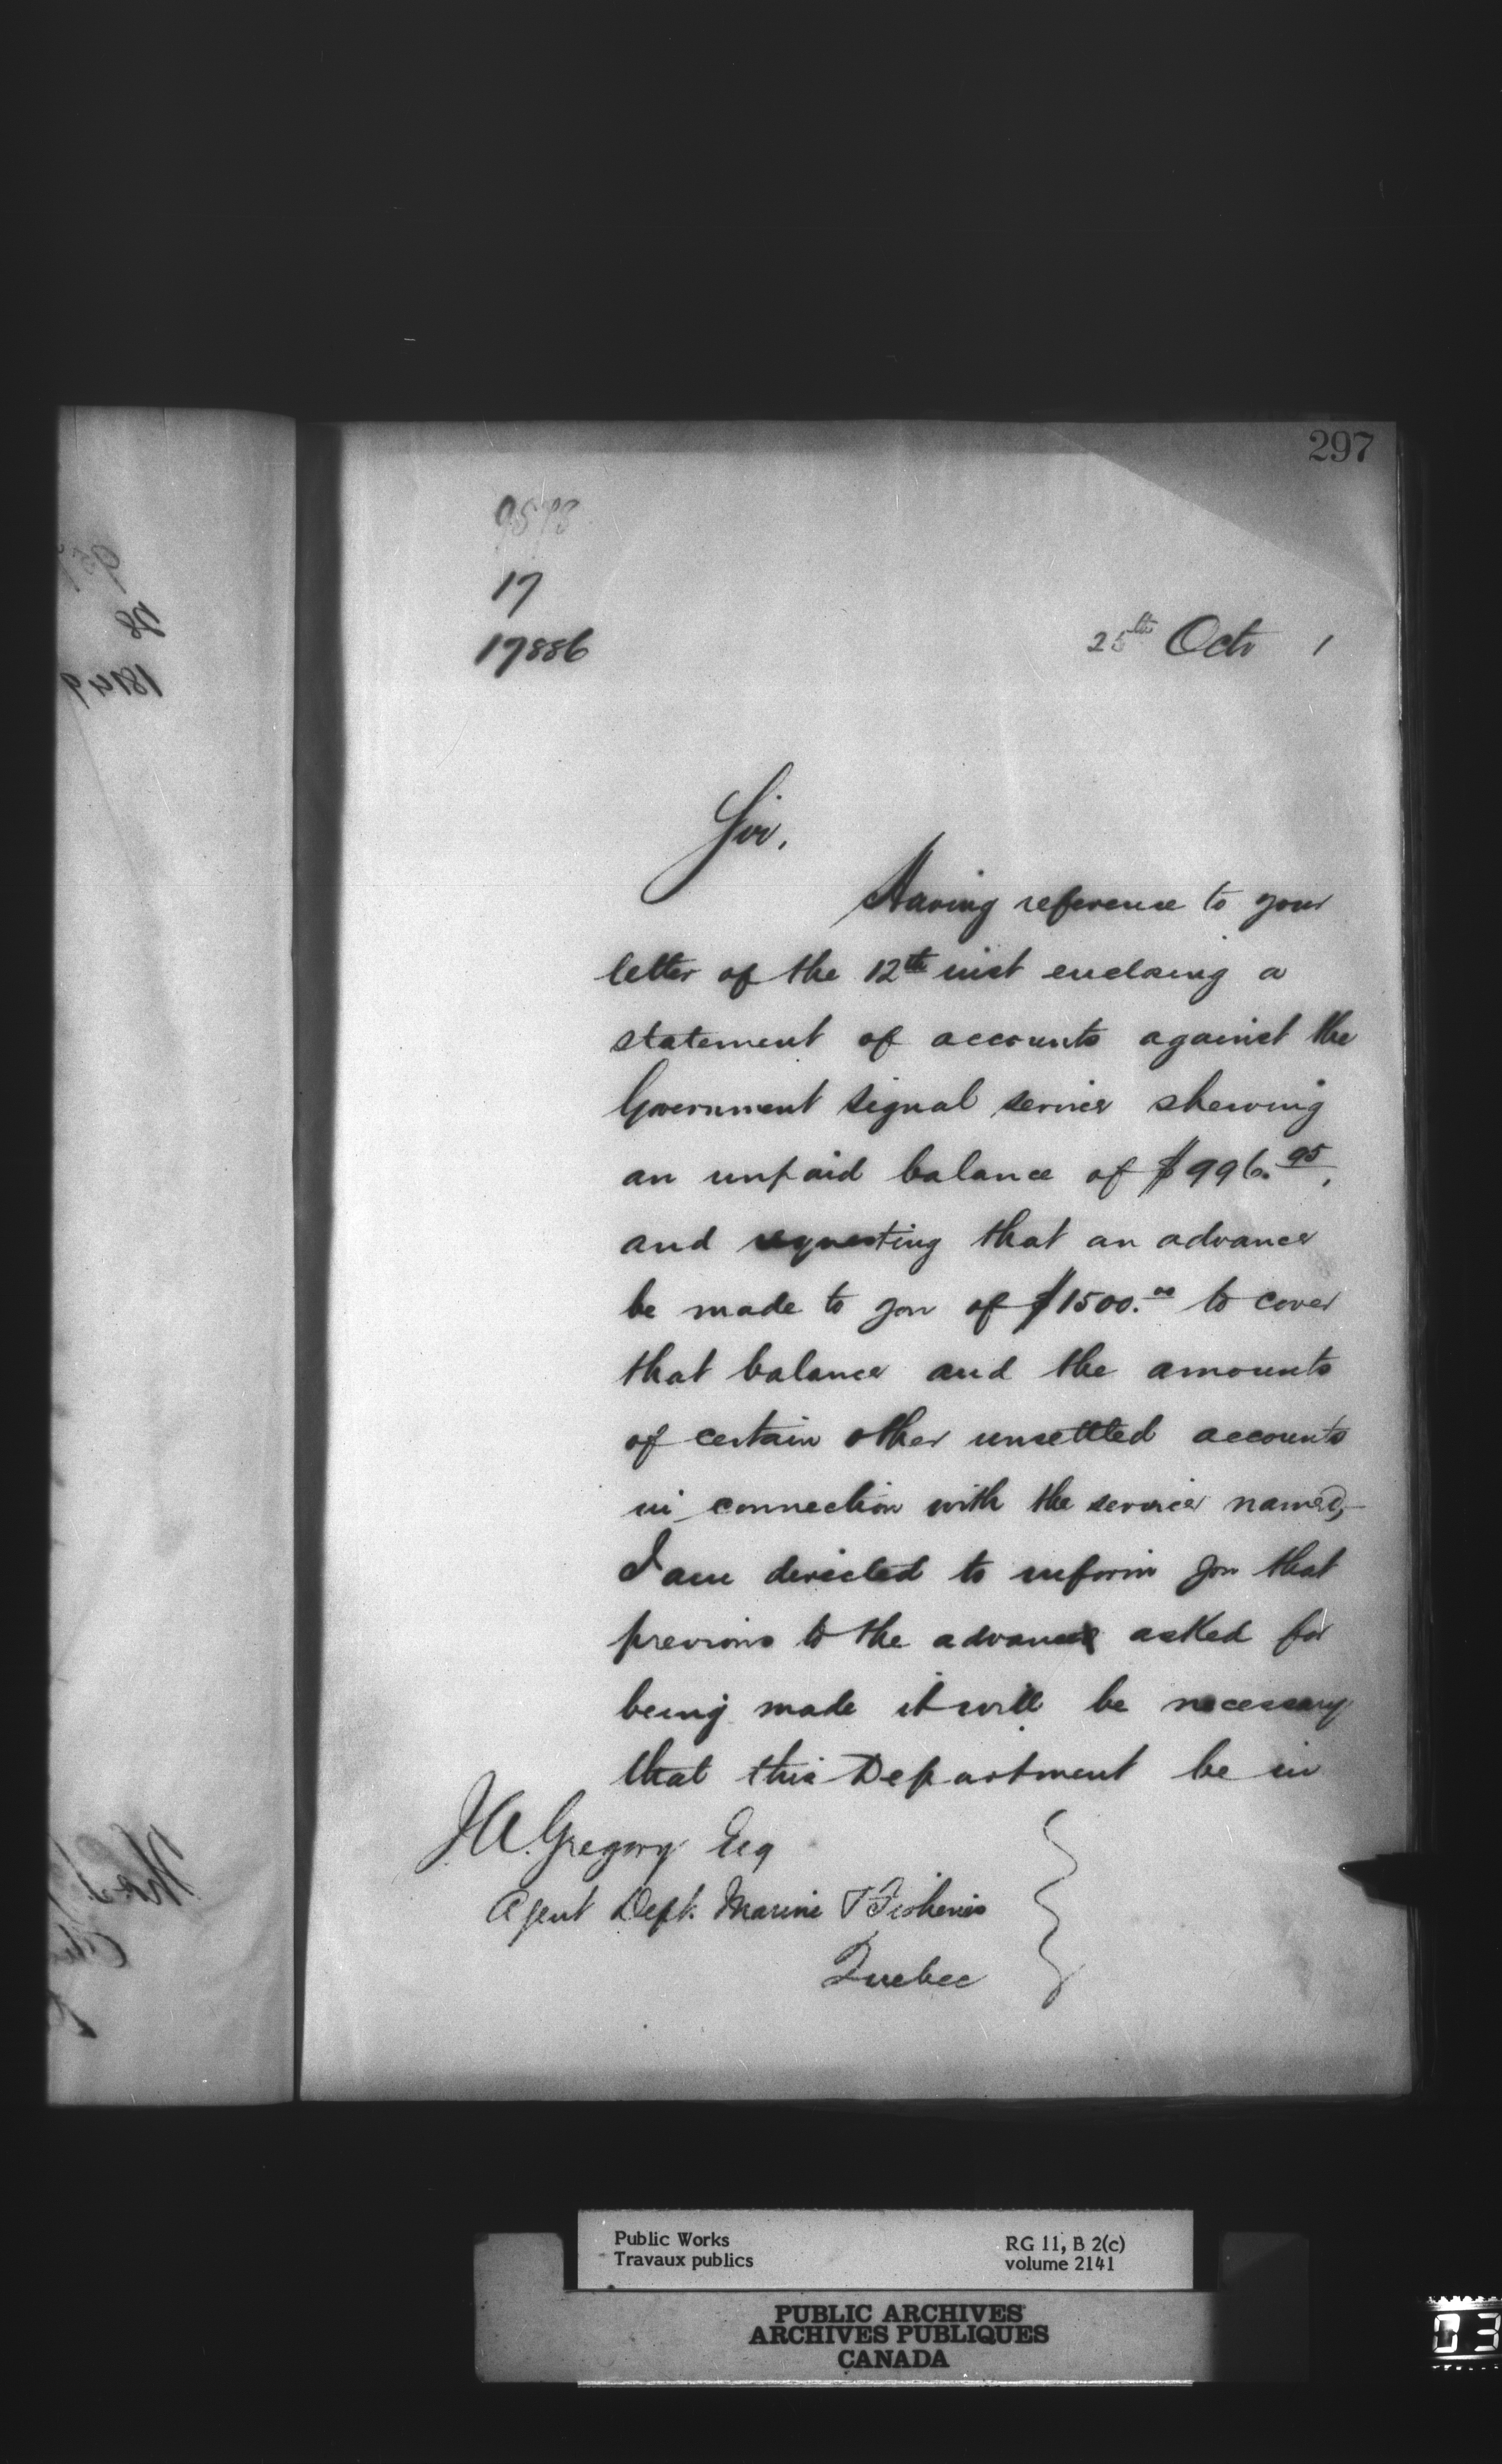 297
9578
17
17886
25th Octr 1
Sir,
Having reference to your
letter of the 12th inst enclosing a
statement of accounts against the
Government Signal service shewing
an unpaid balance of $996.95,
and requesting that an advance
be made to you of $1500.00 to cover
that balance and the amounts
of certain other unsettled accounts
in connection with the service named,
I am directed to inform you that
previous to the advance asked for
being made it will be necessary
that this Department be in
J.U. Gregory Esq
Agent Dept. Marine & Fisheries
Quebec
Public Works
Travaux publics
RG 11, B 2(c)
volume 2141
PUBLIC ARCHIVES
ARCHIVES PUBLIQUES
CANADA
03